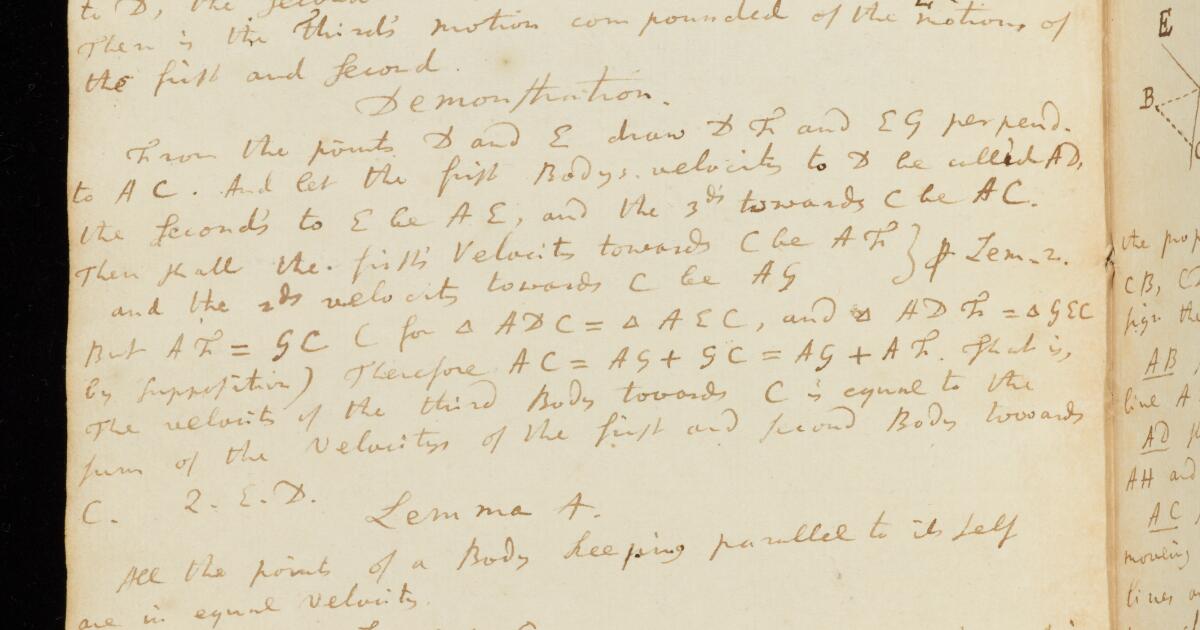 to D, the second
Then is the Third's motion compounded of the motions of
the first and second.
Demonstration.
From the points D and E draw DF and EG perpend.
to AC. And let the first Bodys velocity to D be called AD,
the seconds to E be AE, and the 3ds towards C be AC.
Then shall the first's Velocity towards C be AF } Lem. 2.
and the 2ds velocity towards C be AG
But AF = GC (for Δ ADC = Δ AEC, and Δ ADF = Δ GEC
by supposition) Therefore AC = AG + GC = AG + AF. That is,
The velocity of the third Body towards C is equal to the
sum of the Velocitys of the first and second Body towards
C. Q. E. D.
Lemma 4.
All the points of a Body keeping parallel to its self
are in equal Velocity.
E
B.
C
the
CB, C
sign the
AB
line A
AD
AH and
AC
moving
lines